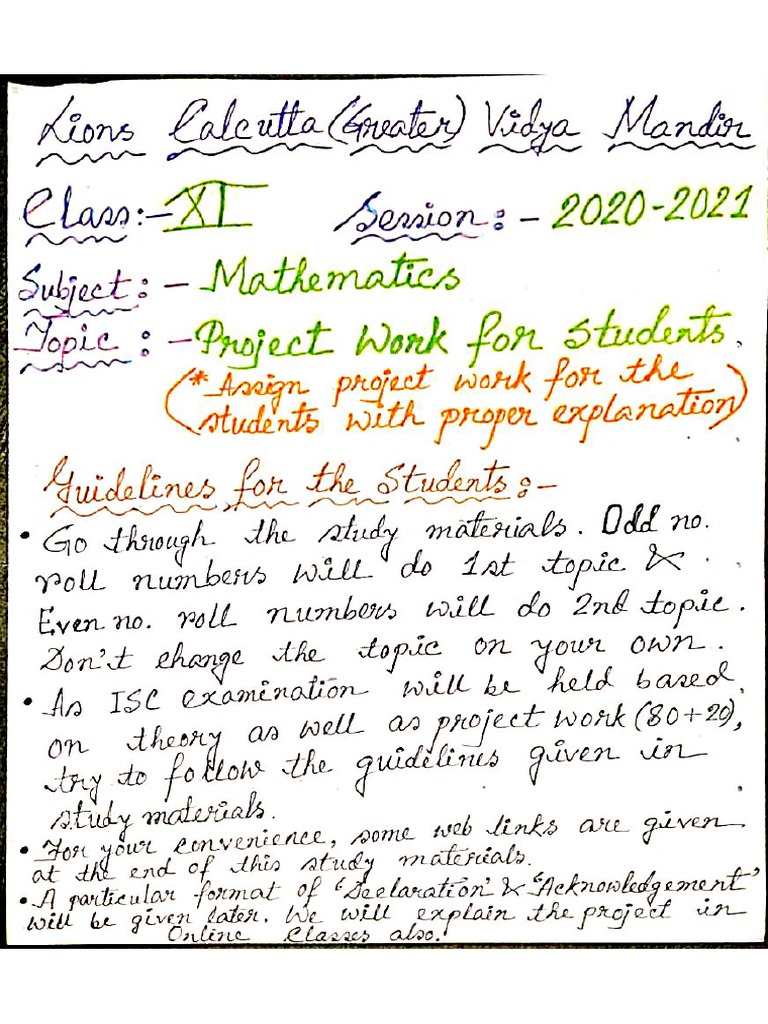 Lions Calcutta (Greater) Vidya Mandir
Class:- XI Session:- 2020-2021
Subject:- Mathematics
Topic:- Project Work for Students.
(*Assign project work for the
students with proper explanation)
Guidelines for the Students:-
• Go through the study materials. Odd no.
roll numbers will do 1st topic &
Even no. roll numbers will do 2nd topic.
Don't change the topic on your own.
• As ISC examination will be held based
on theory as well as project work (80+20),
try to follow the guidelines given in
study materials.
• For your convenience, some web links are given
at the end of this study materials.
• A particular format of 'Declaration' & 'Acknowledgement'
will be given later. We will explain the project in
Online Classes also.